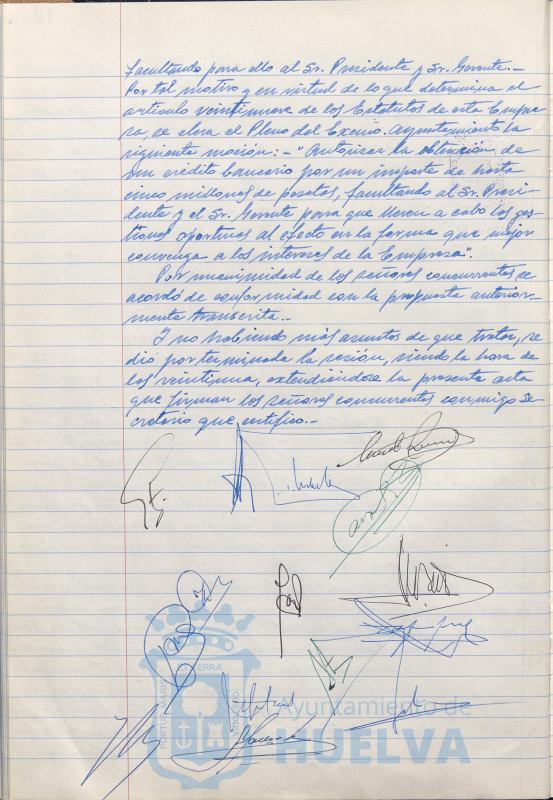 facultando para ello al Sr. Presidente y Sr. Gerente.-
Por tal motivo y en virtud de lo que determina el
artículo veintinueve de los Estatutos de esta Empre-
sa, se eleva al Pleno del Excmo. Ayuntamiento la
siguiente moción: - "Autorizar la obtención de
un crédito bancario por un importe de hasta
cinco millones de pesetas, facultando al Sr. Presi-
dente y el Sr. Gerente para que lleven a cabo las ges-
tiones oportunas al efecto en la forma que mejor
convenga a los intereses de la Empresa".
Por unanimidad de los señores concurrentes se
acordó de conformidad con la propuesta anterior-
mente transcrita.-
Y no habiendo más asuntos de que tratar, se
dió por terminada la sesión, siendo la hora de
las veintiuna, extendiéndose la presente acta
que firman los señores concurrentes conmigo Se-
cretario que certifico.-
Ayuntamiento de
HUELVA